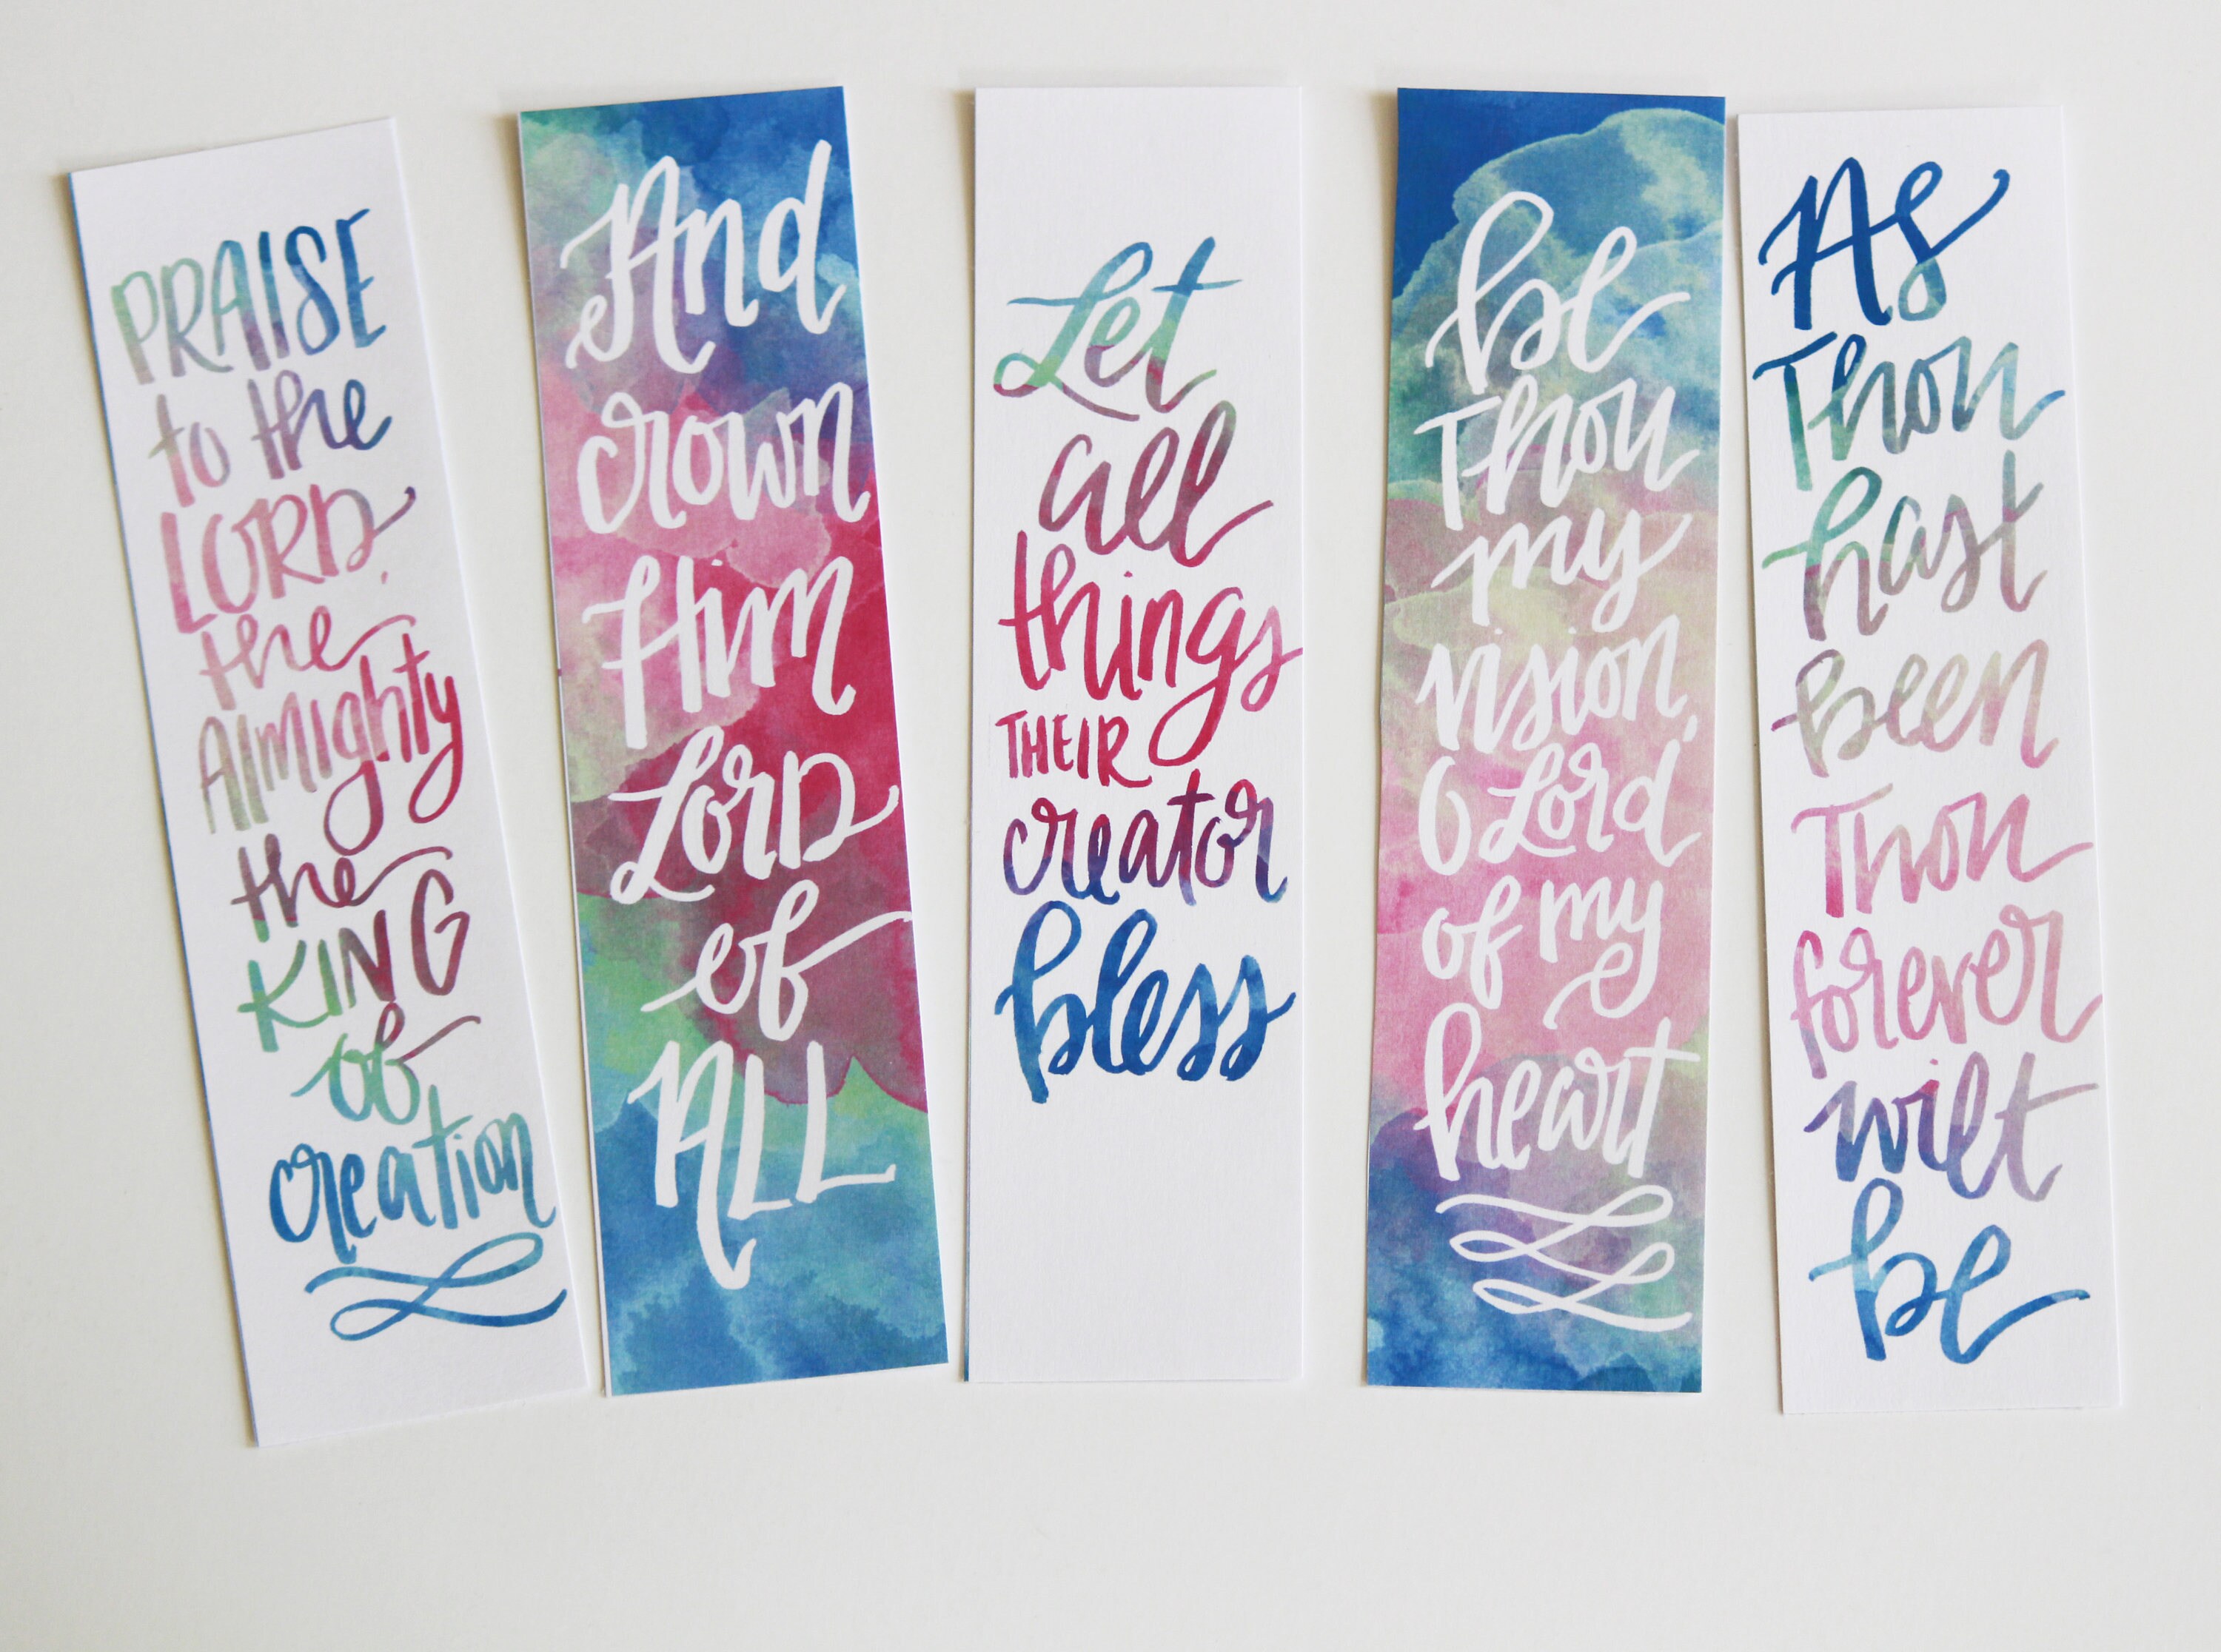 PRAISE
to the
LORD,
the
Almighty
the
KING
of
creation
And
crown
Him
LorD
of
ALL
Let
all
things
THEIR
creator
bless
be
Thou
my
vision,
O Lord
of my
heart
As
Thou
hast
been
Thou
forever
wilt
be